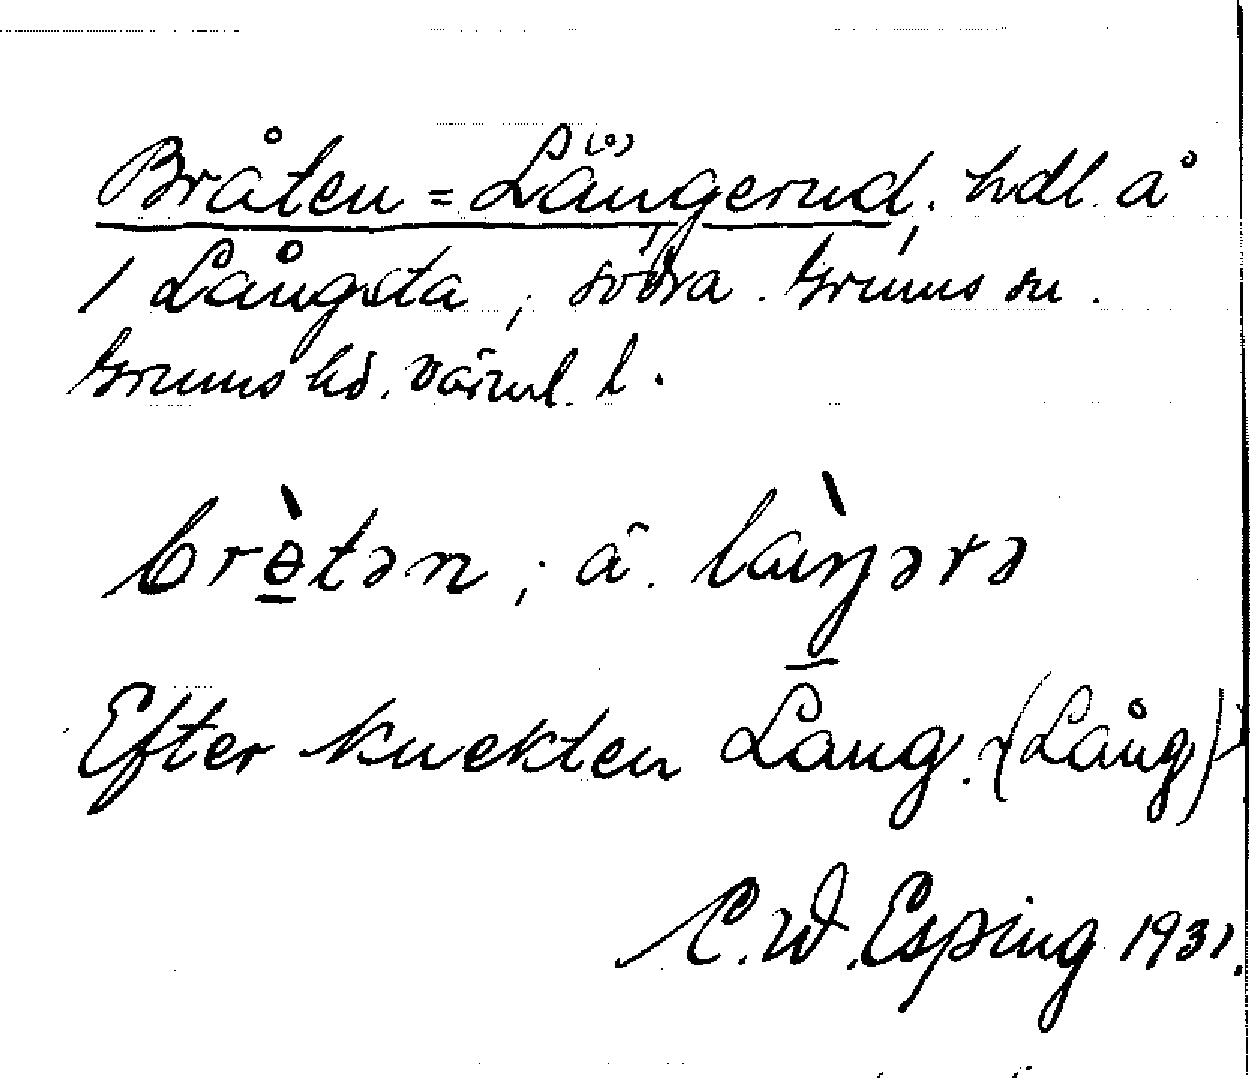 Bråten = Lång(°)erud, hdl. å
1 Långsta, södra. Grums sn.
Grums hd. Värml. l.
brètən; å. làŋərə
Efter knekten Lang. (Lång)
C. W. Esping 1931.